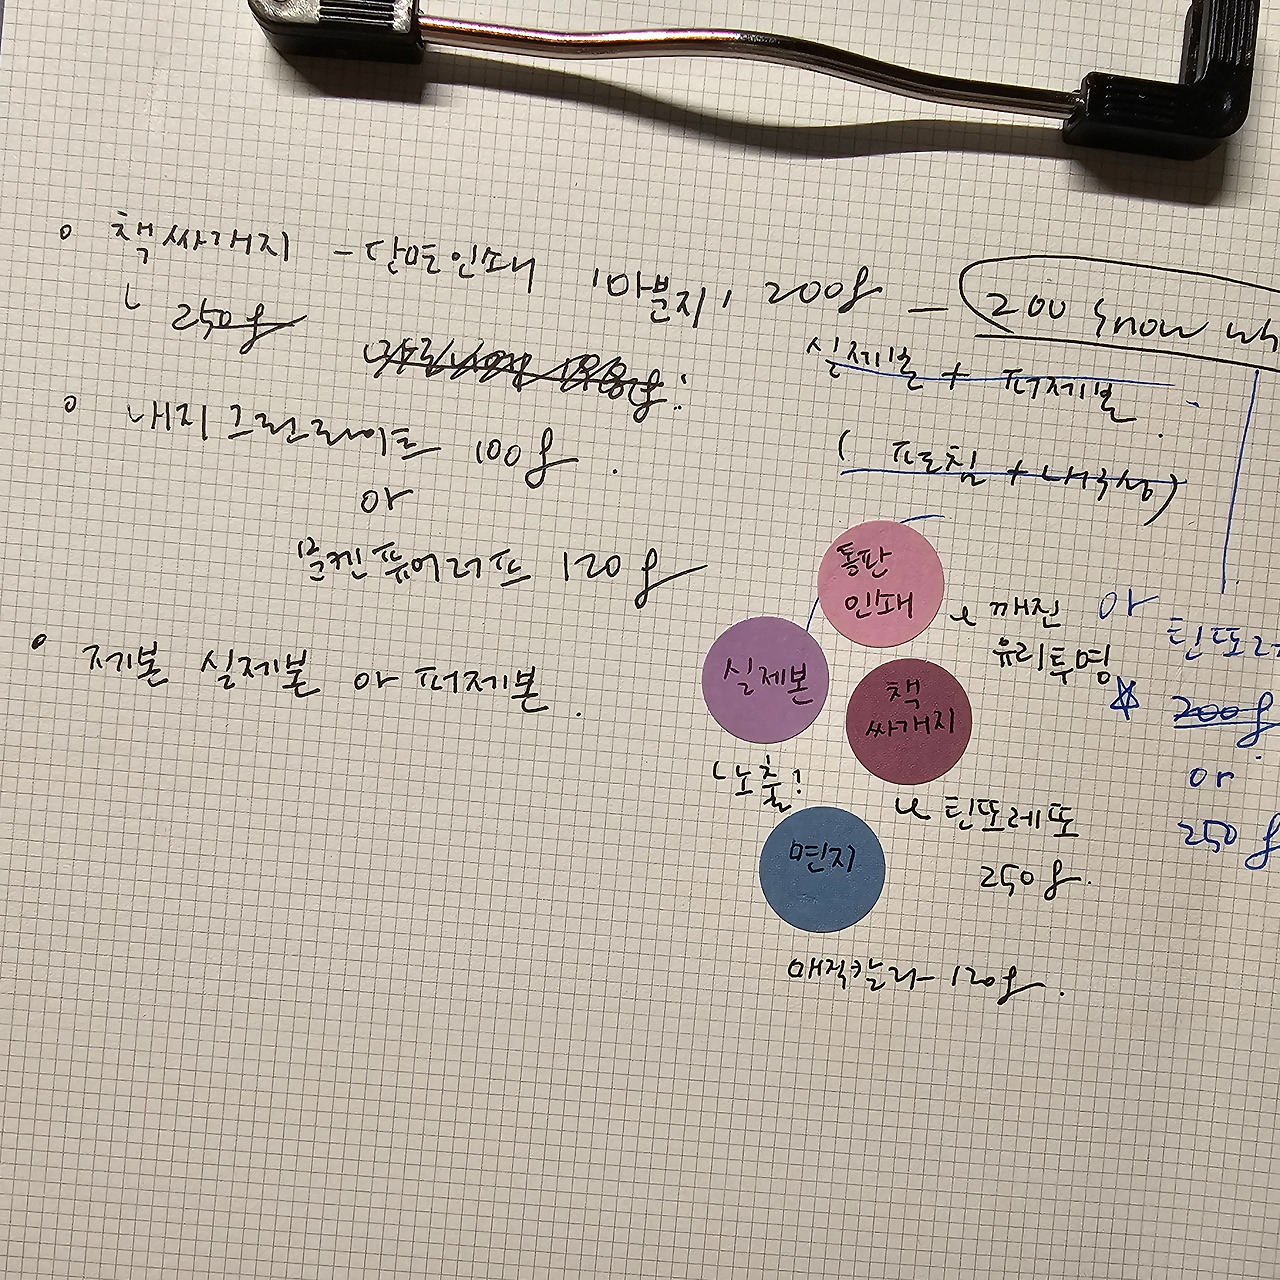 책싸개지 - 단면인쇄 '마분지' 200g - 200 Snow
250g
내지 그린라이트 100g.
or
문켄퓨어러프 120g
제본 실제본 or 퍼제본.
실제본 + 퍼제본.
(표로침 + 내구성)
통판
인쇄
깨진
유리투명
or
실제본
노출!
책
싸개지
틴또레또
250g.
면지
매직칼라 120g.
200g
or
250g